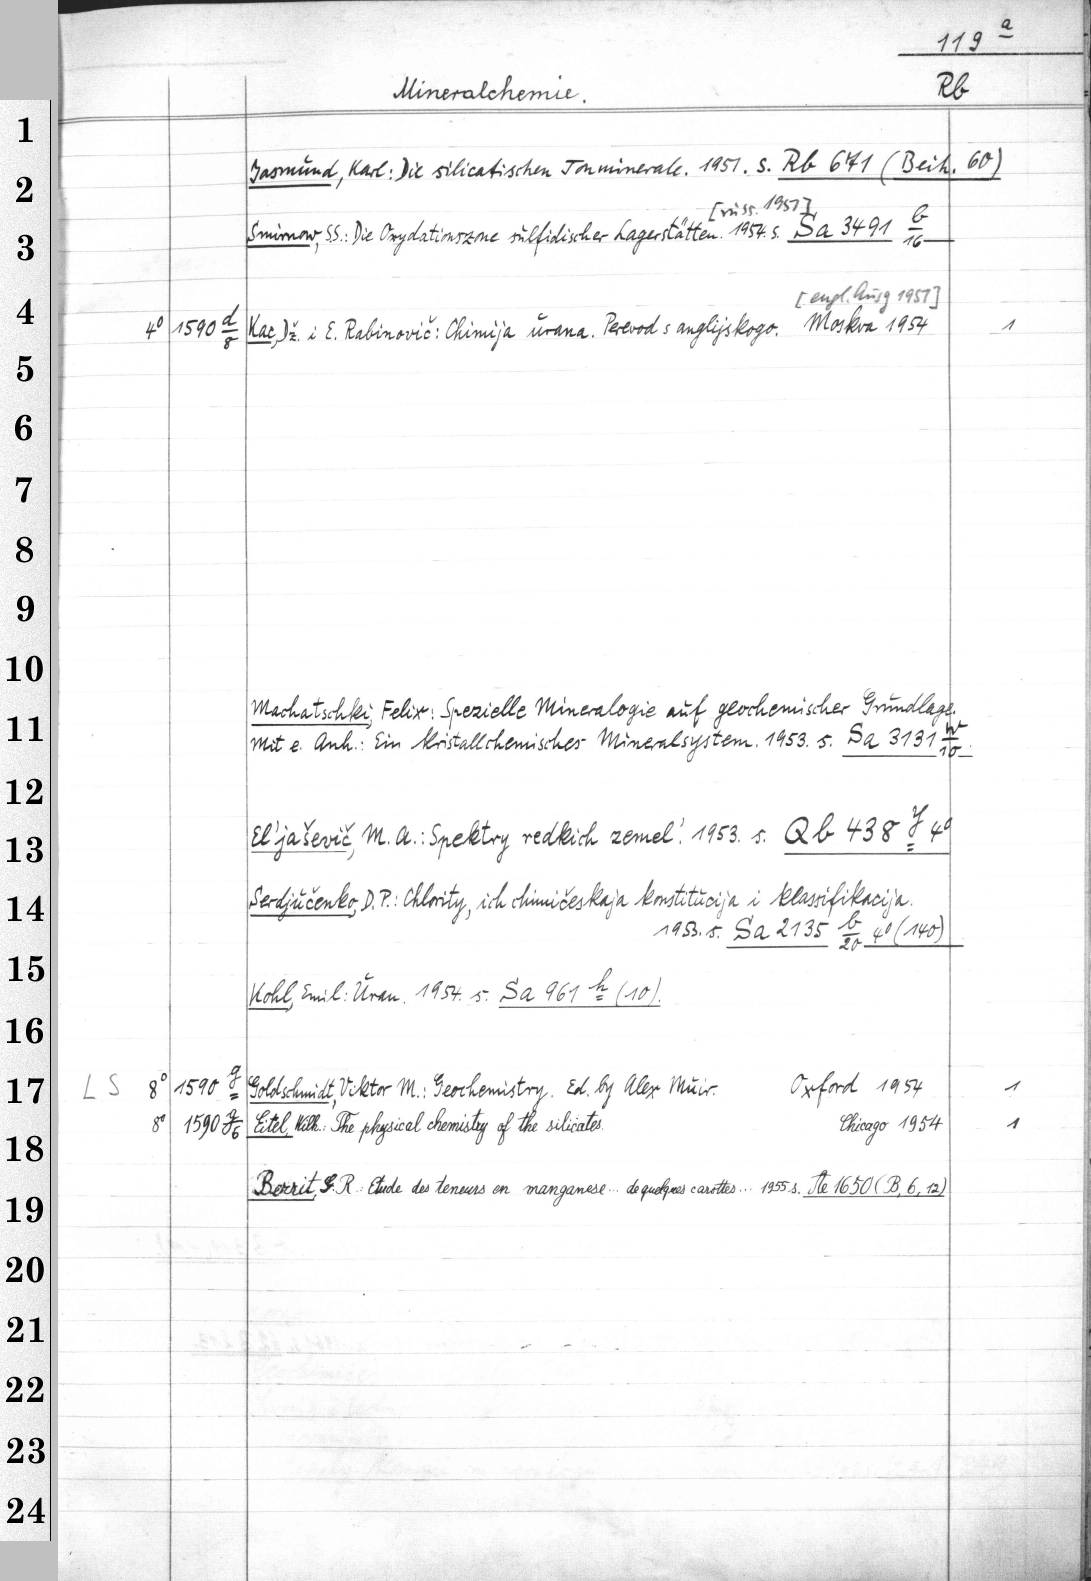 119 a
Mineralchemie. Rb
1
Jasmund, Karl: Die silicatischen Tonminerale. 1951. s. Rb 671 (Beih. 60)
2
[russ. 1951]
Smirnow, SS.: Die Oxydationszone sulfidischer Lagerstätten. 1954. s. Sa 3491 b/16
3
[engl. Ausg 1951]
4
4° 1590 d/8 Kac, Dž. i E. Rabinovič: Chimija urana. Perevod s anglijskogo. Moskva 1954 1
5
6
7
8
9
10
Machatschki, Felix: Spezielle Mineralogie auf geochemischer Grundlage.
11
Mit e. Anh.: Ein kristallchemisches Mineralsystem. 1953. s. Sa 3131 w/10
12
El'jaševič, M. A.: Spektry redkich zemel'. 1953. s. Qb 438 y 4°
13
Serdjučenko, D. P.: Chlority, ich chimičeskaja konstitucija i klassifikacija.
14
1953. s. Sa 2135 b/20 4° (140)
15
Kohl, Emil: Uran. 1954. s. Sa 961 h (10).
16
17
L S 8° 1590 g Goldschmidt, Viktor M.: Geochemistry. Ed. by Alex Muir. Oxford 1954 1
8° 1590 g/6 Eitel, Wilh.: The physical chemistry of the silicates. Chicago 1954 1
18
Berrit, G. R.: Etude des teneurs en manganese... de quelques carottes... 1955. s. Ac 1650 (B, 6, 12)
19
20
21
22
23
24